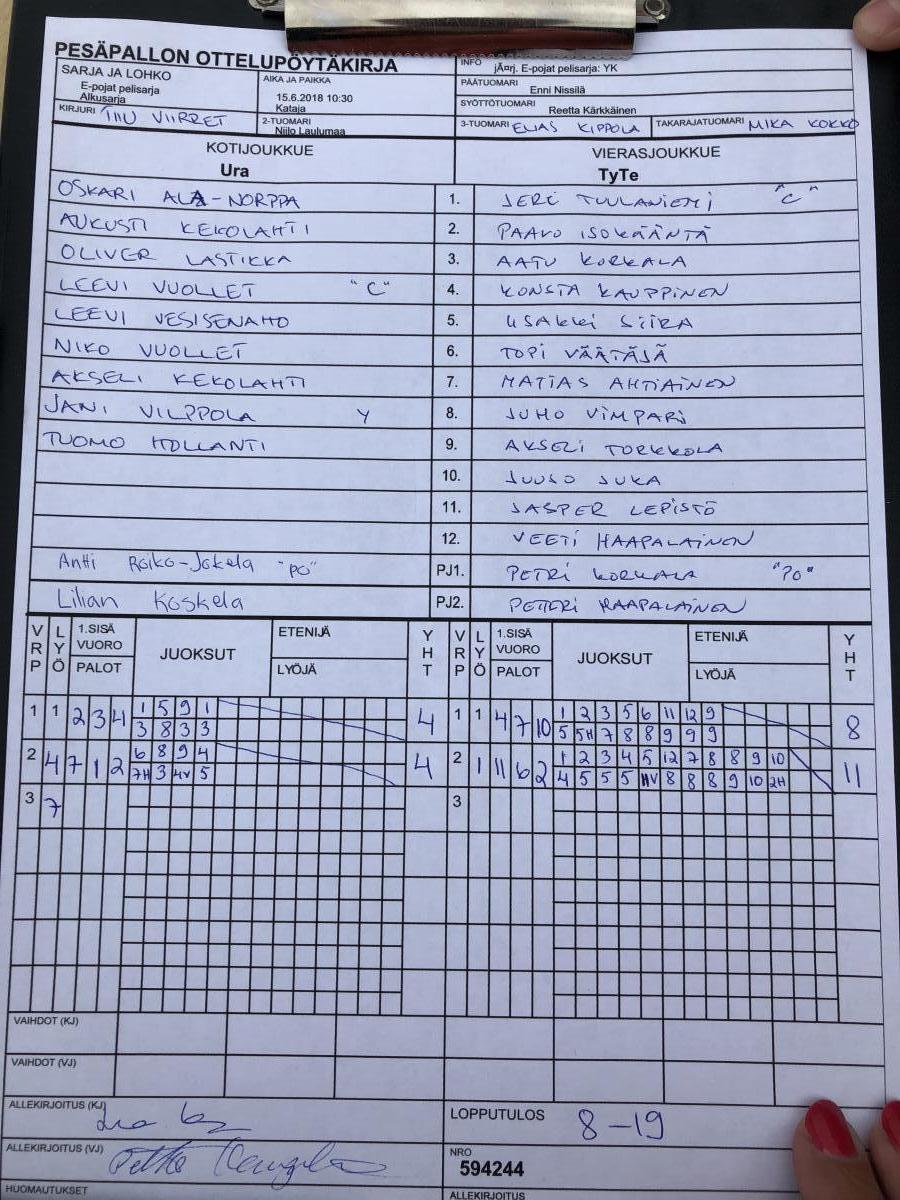 PESÄPALLON OTTELUPÖYTÄKIRJA
SARJA JA LOHKO
E-pojat pelisarja
Alkusarja
AIKA JA PAIKKA
15.6.2018 10:30
Kataja
INFO jÃ¤rj. E-pojat pelisarja: YK
PÄÄTUOMARI Enni Nissilä
SYÖTTÖTUOMARI Reetta Kärkkäinen
KIRJURI TIIU VIIRRET
2-TUOMARI
Niilo Laulumaa
3-TUOMARI ELIAS KIPPOLA
TAKARAJATUOMARI MIKA KOKKO
KOTIJOUKKUE
Ura
VIERASJOUKKUE
TyTe
OSKARI ALA-NORPPA 1. JERI TUULANIEMI "C"
AUKUSTI KEKOLAHTI 2. PAAVO ISOKÄÄNTÄ
OLIVER LASTIKKA 3. AATU KORKALA
LEEVI VUOLLET "C" 4. KONSTA KAUPPINEN
LEEVI VESISENAHO 5. IISAKKI SIIRA
NIKO VUOLLET 6. TOPI VÄÄTÄJÄ
AKSELI KEKOLAHTI 7. MATIAS AHTIAINEN
JANI VILPPOLA Y 8. JUHO VIMPARI
TUOMO HOLLANTI 9. AKSELI TORKKOLA
10. JUUSO JUKA
11. JASPER LEPISTÖ
12. VEETI HAAPALAINEN
Antti Roiko-Jokela "PO" PJ1. PETRI KORKALA "PO"
Lilian Koskela PJ2. PETTERI HAAPALAINEN
VRP LYÖ 1.SISÄ VUORO PALOT JUOKSUT ETENIJÄ LYÖJÄ YHT VRP LYÖ 1.SISÄ VUORO PALOT JUOKSUT ETENIJÄ LYÖJÄ YHT
1 1 2 3 4 1 5 9 1 4 1 1 4 7 10 1 2 3 5 6 11 12 9 8
3 8 3 3 5 5H 7 8 8 9 9 9
2 4 7 1 2 6 8 9 4 4 2 1 11 6 2 1 2 3 4 5 12 7 8 8 9 10 11
7H 3 4V 5 4 5 5 5 HV 8 8 8 9 10 2H
3 7 3
VAIHDOT (KJ)
VAIHDOT (VJ)
ALLEKIRJOITUS (KJ)
LOPPUTULOS 8-19
ALLEKIRJOITUS (VJ)
NRO
594244
HUOMAUTUKSET
ALLEKIRJOITUS